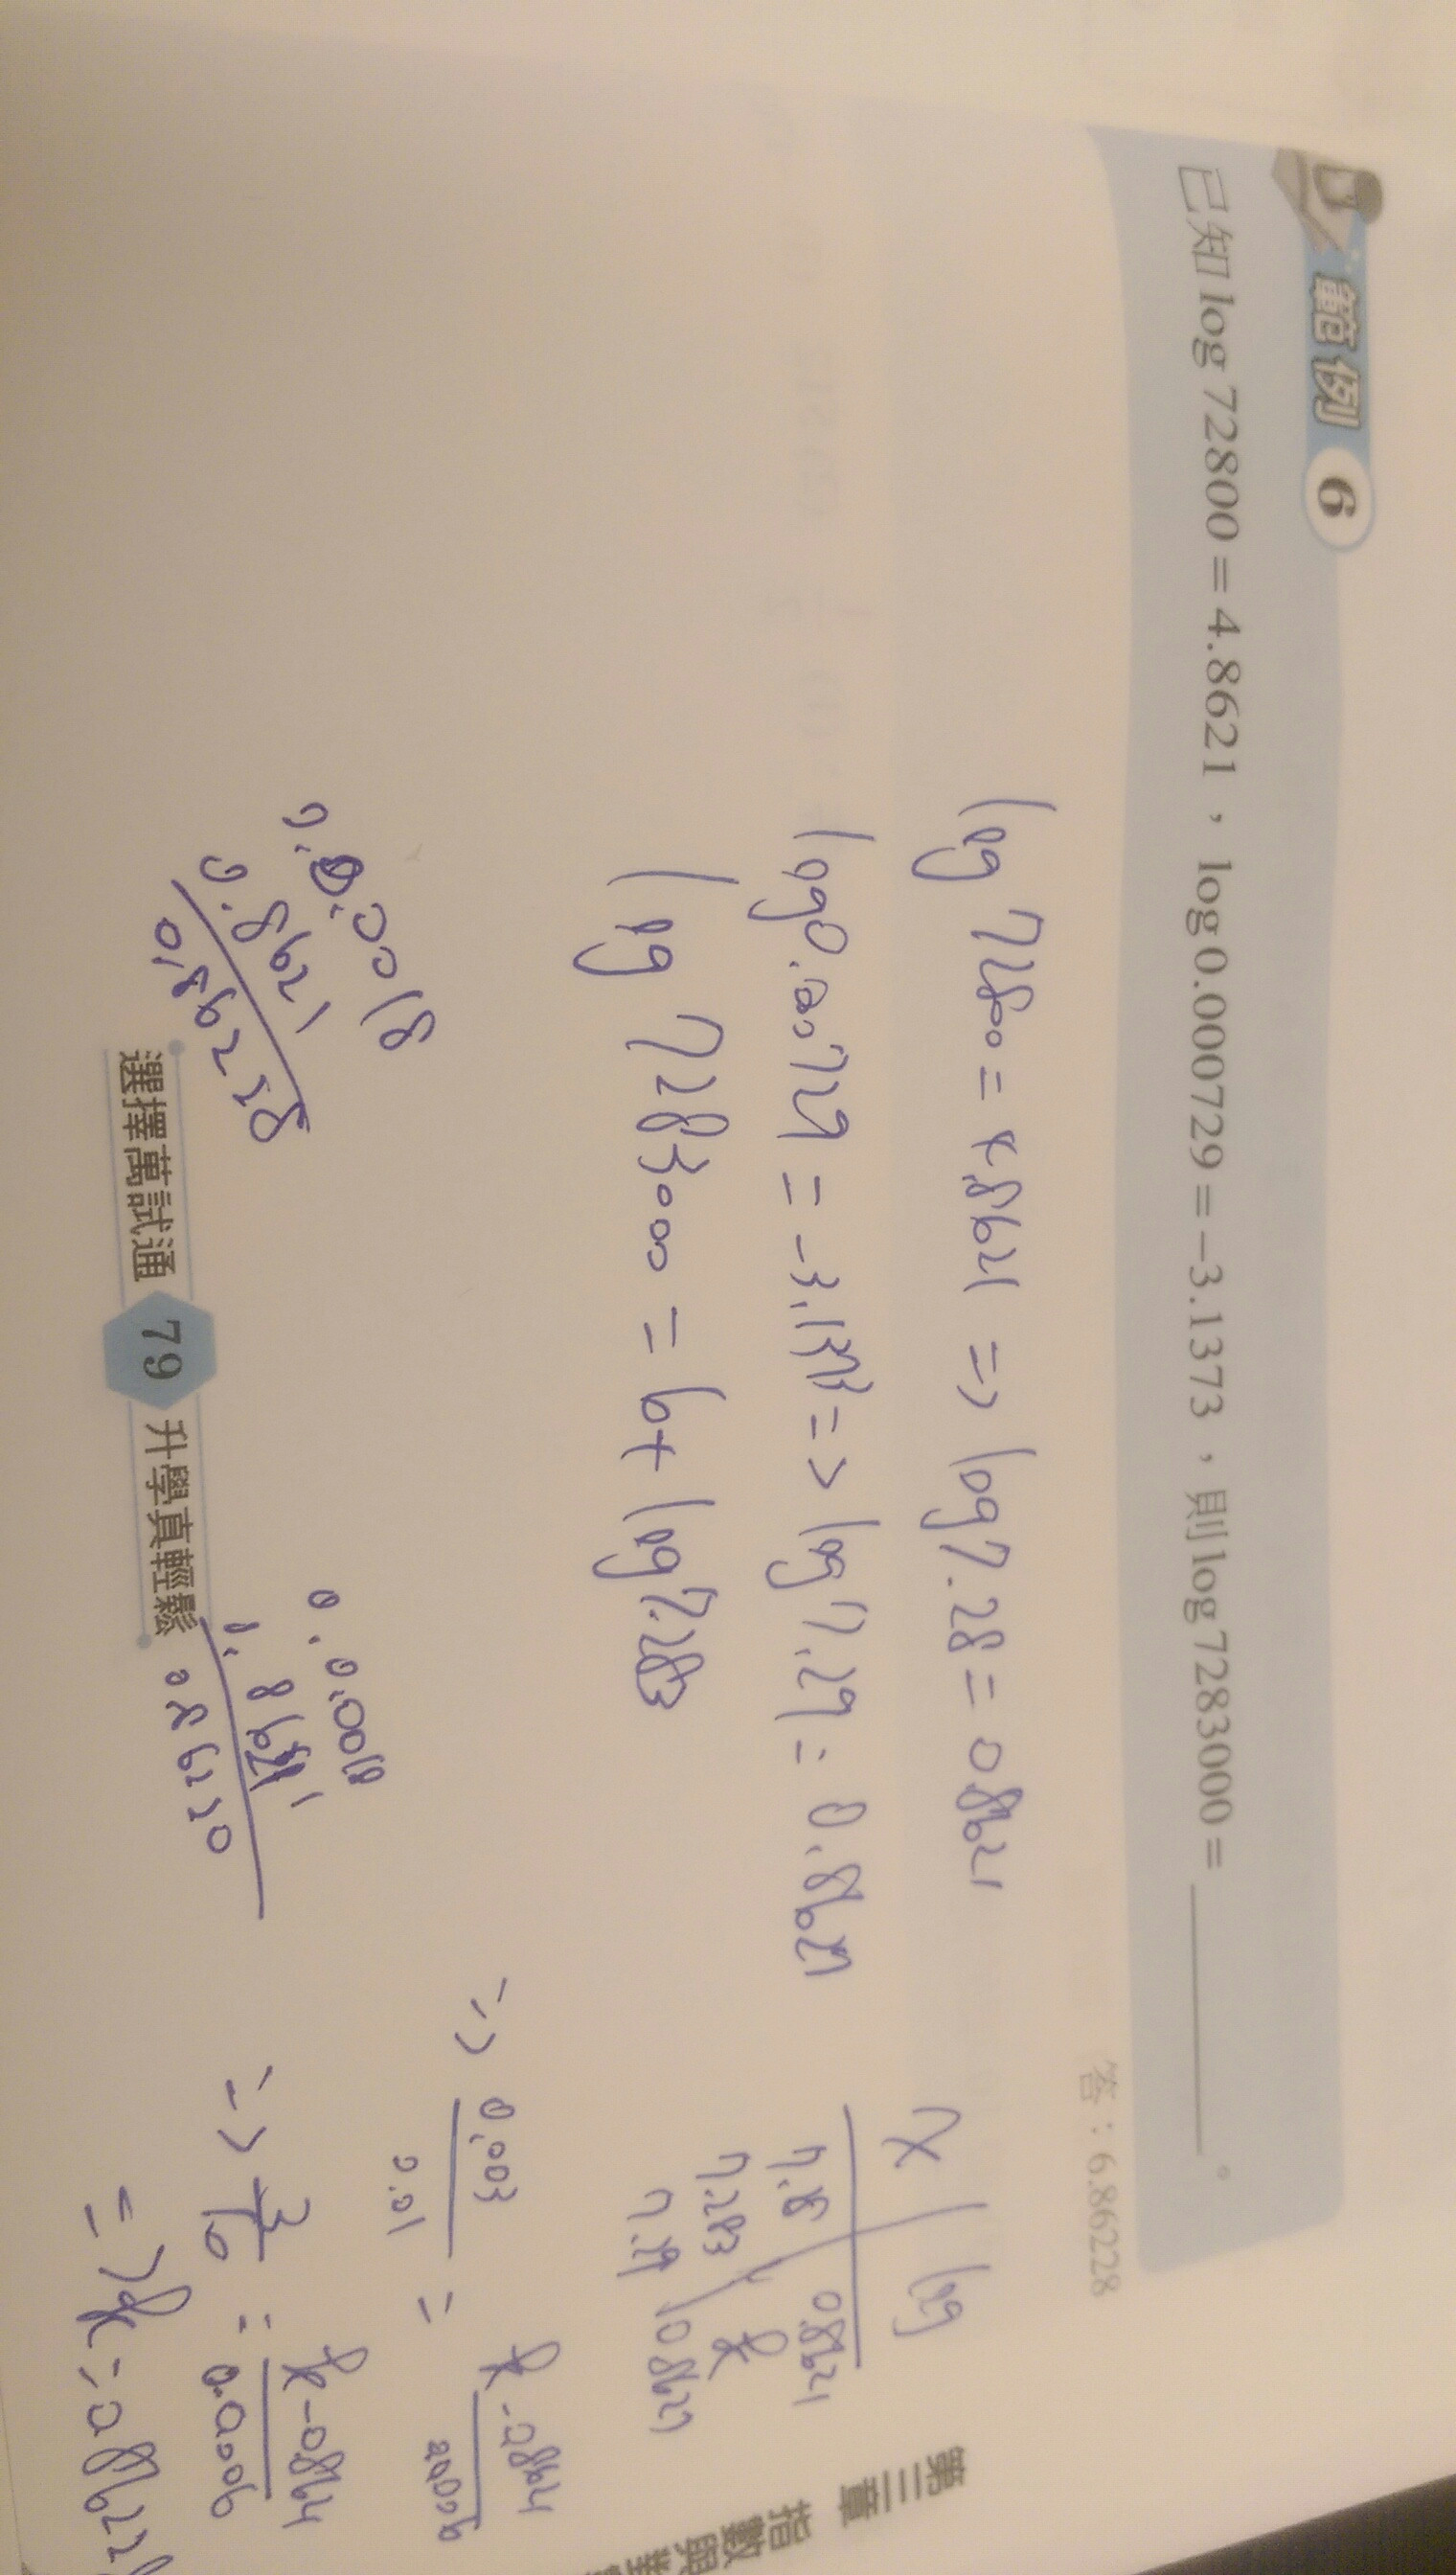 第三章 指數與對
範例 6
已知 log 72800 = 4.8621，log 0.000729 = −3.1373，則 log 7283000 = ______。
答：6.86228
log 72800 = 4.8621 => log 7.28 = 0.8621
log 0.000729 = -3.1373 => log 7.29 = 0.8627
log 7283000 = 6 + log 7.283
x | log
7.28 0.8621
7.283 k
7.29 0.8627
=> 0.003
0.01
=
=> 3
10
=
0.0006
=> k = 0.86228
0.00018
0.8621
0.86228
0.8621
選擇萬試通 79 升學真輕鬆